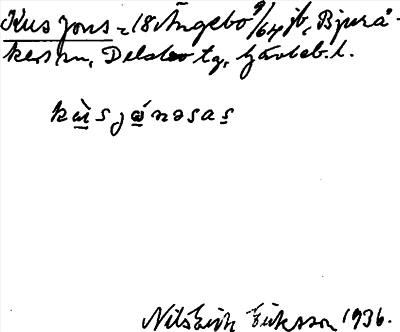 Kus Jons = 18 Ängebo 9/64 jb, Bjurå-
kers sn, Delsbo tg, Gävleb. l.
kùsjónəsas
Nils Erik Eriksson 1936.